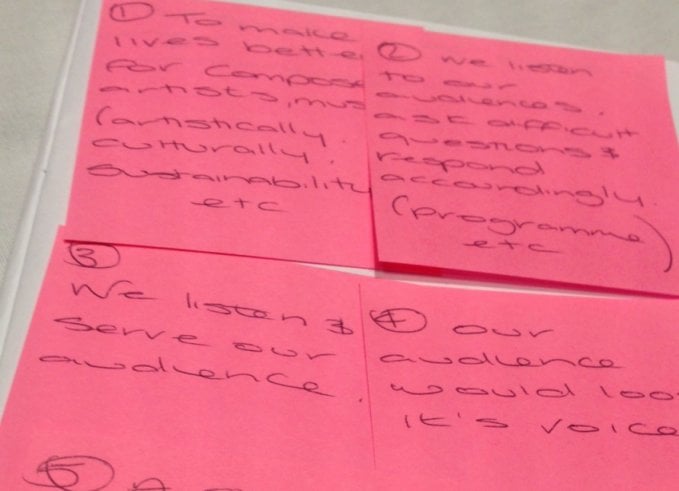 ① To make
lives bette
for compos
artists, mus
(artistically
culturally
sustainability
etc
② we listen
to our
audiences,
ask difficult
questions &
respond
accordingly.
(programme)
etc
③
We listen &
serve our
audience.
④ our
audience
would loo
it's voice
⑤ A